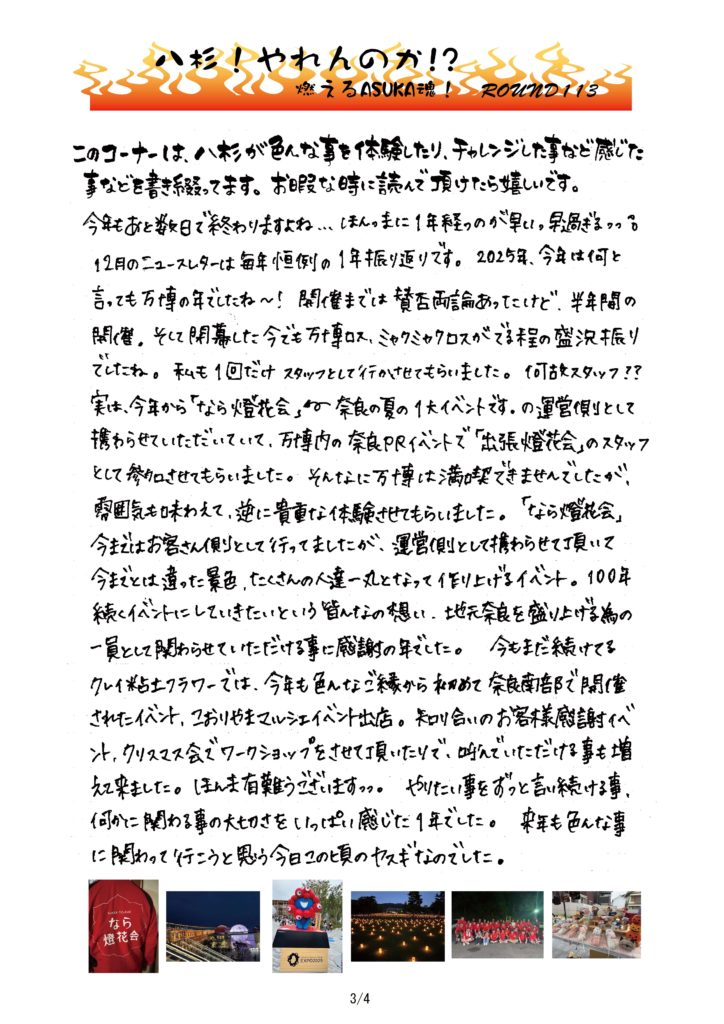 八杉！やれんのか!?
燃えるASUKA魂！ ROUND113
このコーナーは、八杉が色んな事を体験したり、チャレンジした事など感じた
事などを書き綴ってます。お暇な時に読んで頂けたら嬉しいです。
今年もあと数日で終わりますよね… ほんっまに1年経つのが早いっ早過ぎるっっる
12月のニュースレターは毎年恒例の1年振り返りです。2025年、今年は何と
言っても万博の年でしたね〜！ 開催までは賛否両論あったけど、半年間の
開催。そして閉幕した今でも万博ロス、ミャクミャクロスがでる程の盛況振り
でしたね。私も1回だけスタッフとして行かさせてもらいました。何故スタッフ??
実は、今年から「なら燈花会」← 奈良の夏の1大イベントです。の運営側として
携わらせていただいていて、万博内の奈良PRイベントで「出張燈花会」のスタッフ
として参加させてもらいました。そんなに万博は満喫できませんでしたが、
雰囲気も味わえて、逆に貴重な体験させてもらいました。「なら燈花会」
今まではお客さん側として行ってましたが、運営側として携わらせて頂いて
今までとは違った景色、たくさんの人達一丸となって作り上げるイベント。100年
続くイベントにしていきたいという皆んなの想い、地元奈良を盛り上げる為の
一員として関わらせていただける事に感謝の年でした。 今もまだ続けてる
クレイ粘土クラワーでは、今年も色んなご縁から初めて奈良南部で開催
されたイベント、こおりやまマルシェイベント出店。知り合いのお客様感謝イベ
ント、クリスマス会でワークショップをさせて頂いたりで、呼んでいただける事も増
えて来ました。ほんま有難うございますっっ。 やりたい事をずっと言い続ける事、
何かに関わる事の大切さをいっぱい感じた1年でした。 来年も色んな事
に関わって行こうと思う今日この頃のヤスギなのでした。
なら
燈花会
EXPO2025
3/4